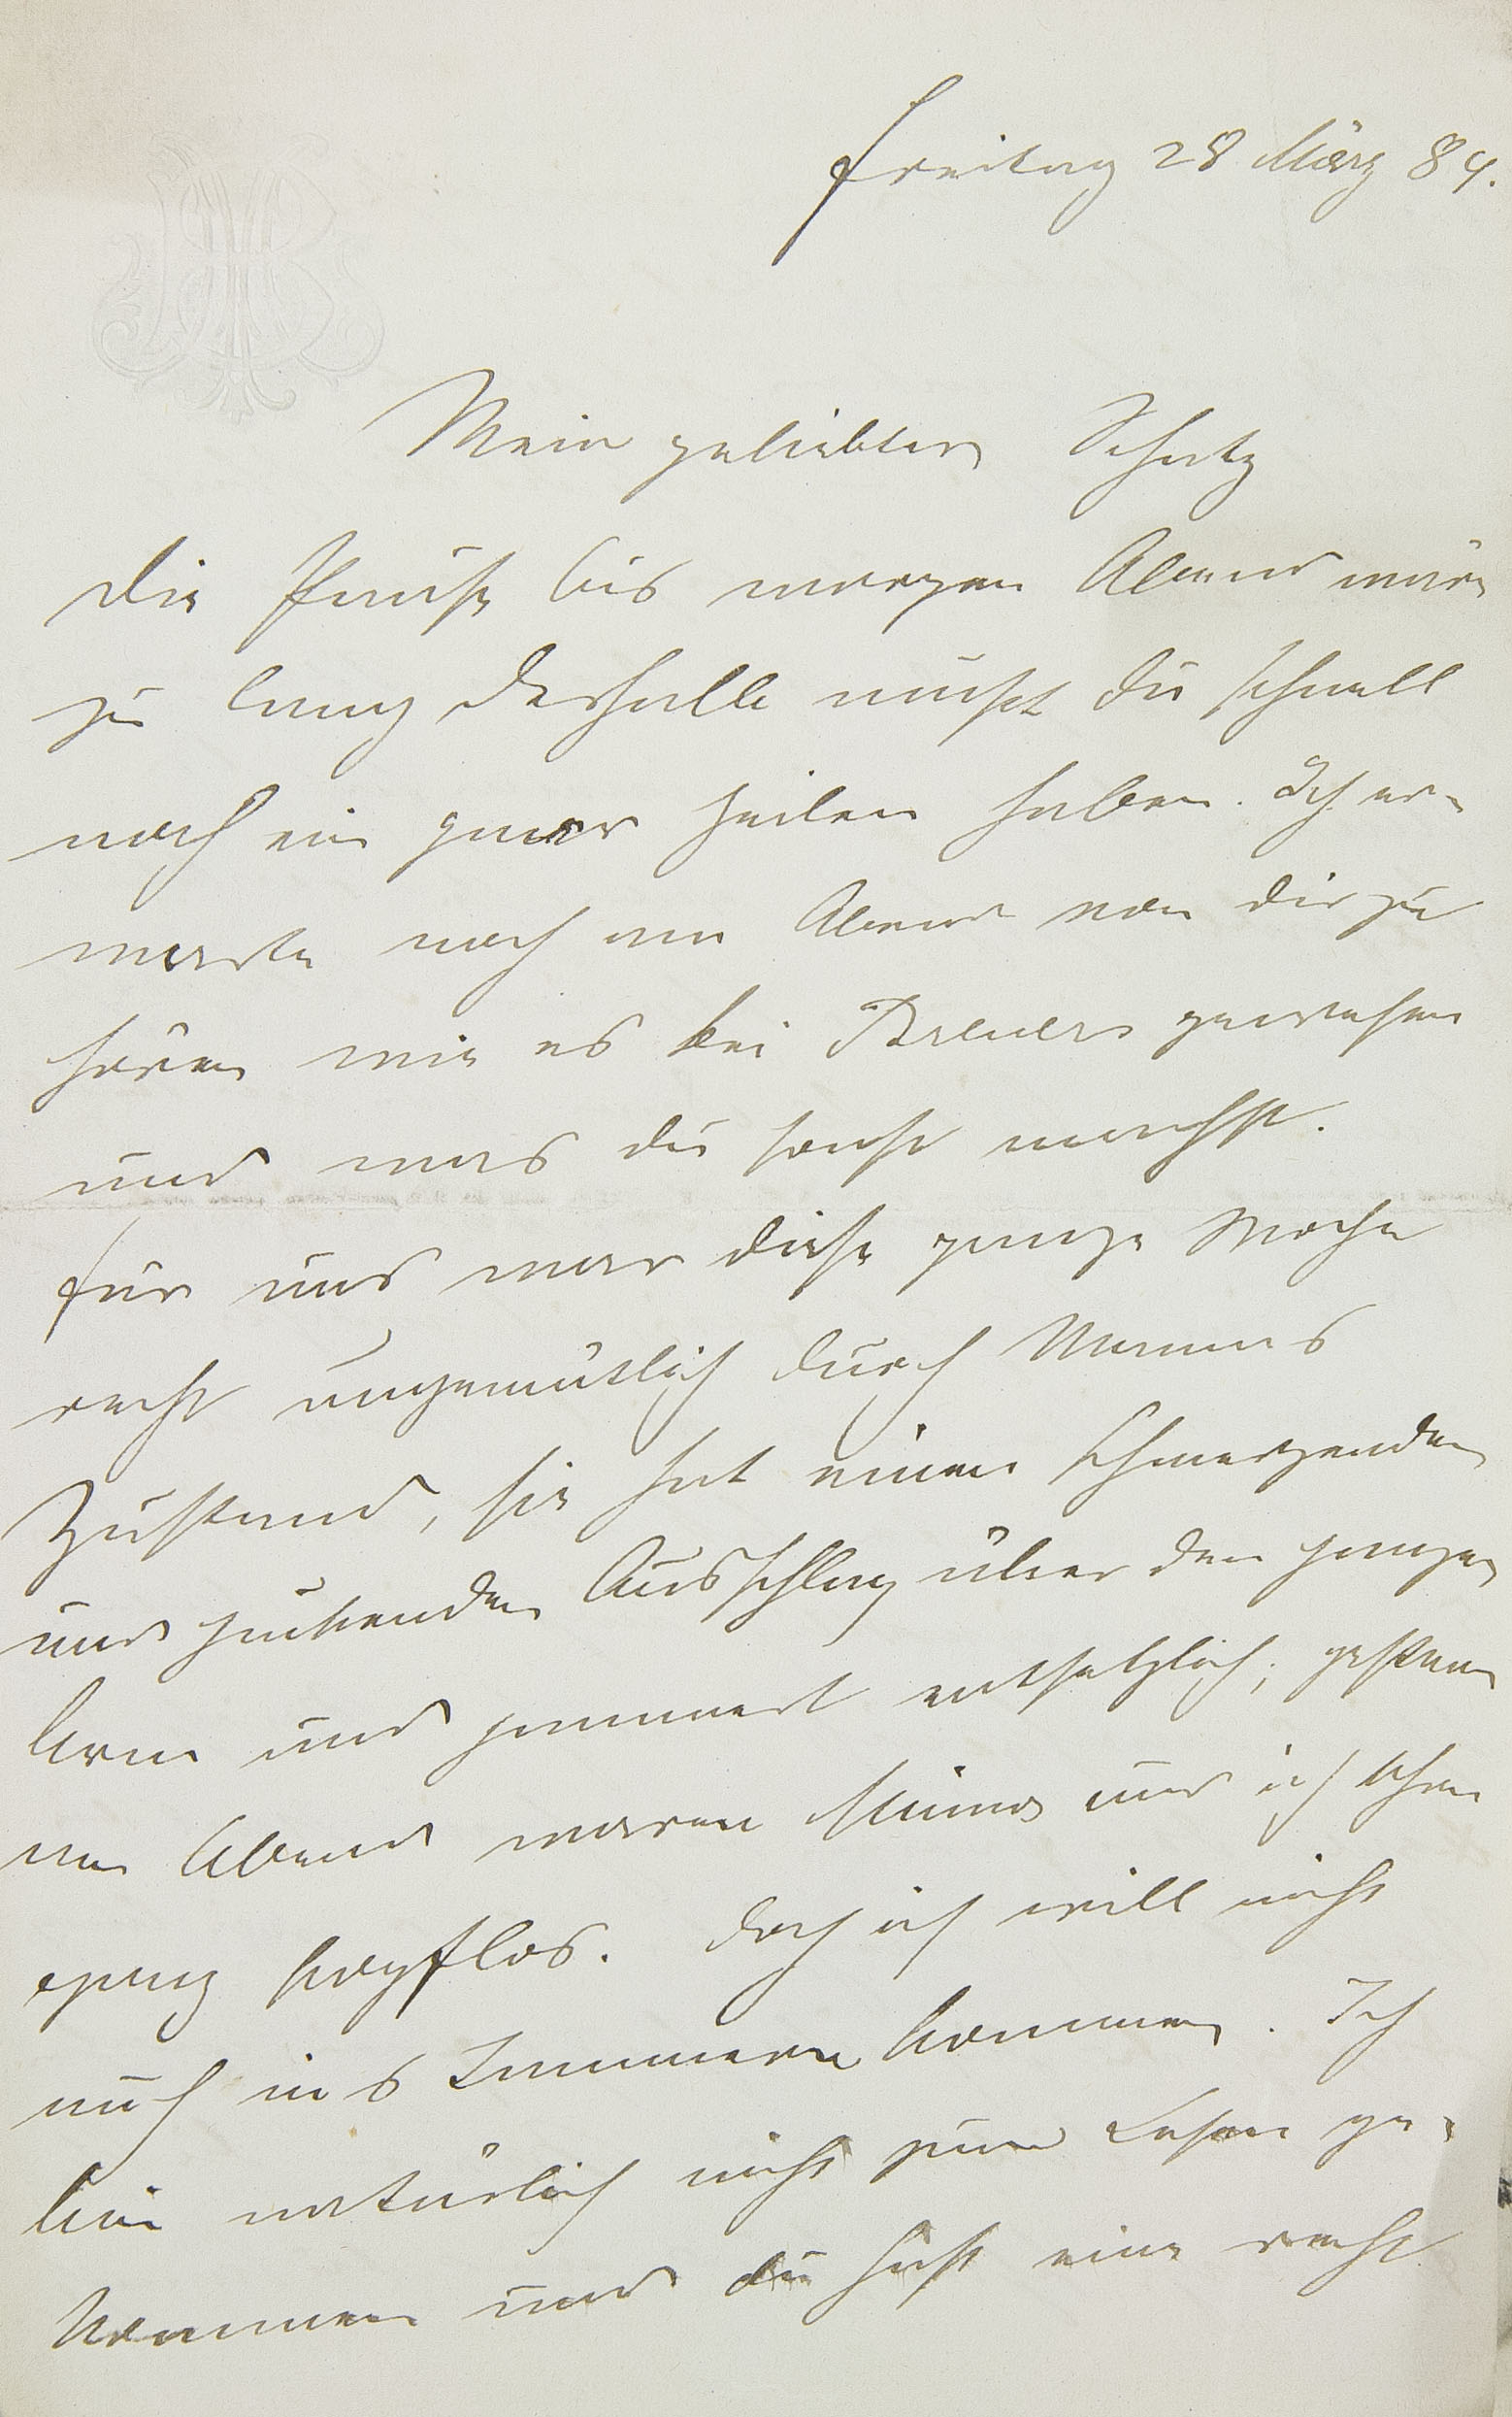 Freitag 28 März 84.
Mein geliebter Schatz
Die Pause bis morgen Abend wäre
zu lang deshalb mußt du schnell
noch ein paar Zeilen haben. Ich er-
warte noch am Abend von dir zu
hören wie es bei Breuers gewesen
und was du sonst machst.
Für uns war diese ganze Woche
recht ungemütlich durch Mamas
Zustand, sie hat einen schmerzenden
und juckenden Ausschlag über den ganzen
Arm und jammert entsetzlich; gestern
am Abend waren Minna und ich schon
ganz kopflos. Doch ich will nicht
auch ins Jammern kommen. Ich
bin natürlich nicht zum Lesen ge-
kommen und du hast eine recht